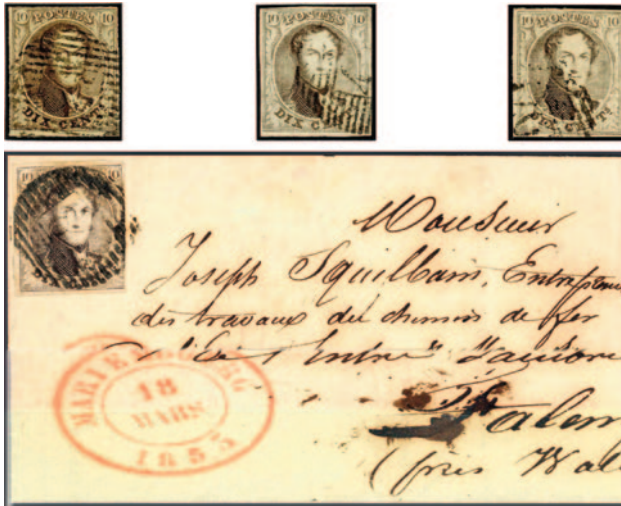 10 POSTES 10
DIX CENTS
10 POSTES 10
DIX C
10 POSTES 10
DIX CENTS
10 10
DIX
Monsieur
Joseph Squilbain, Entrepreneu
des travaux du chemin de fer
Entre
MARIEMBOURG
18
MARS
1853
Stalem
(près Wal